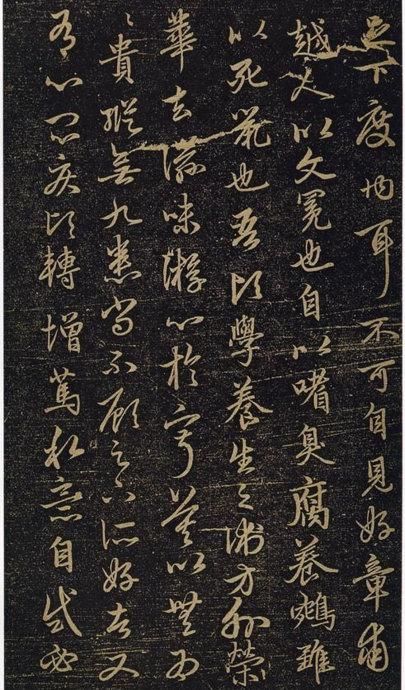 足下度内耳不可自見好章甫
越人以文冕也自以嗜臭腐養鵷雛
以死鼠也吾頃學養生之術方外榮
華去滋味遊心於寂寞以無為
〻貴縱無九患尚不顧足下所好者又
有心悶疾頃轉增篤私意自試必